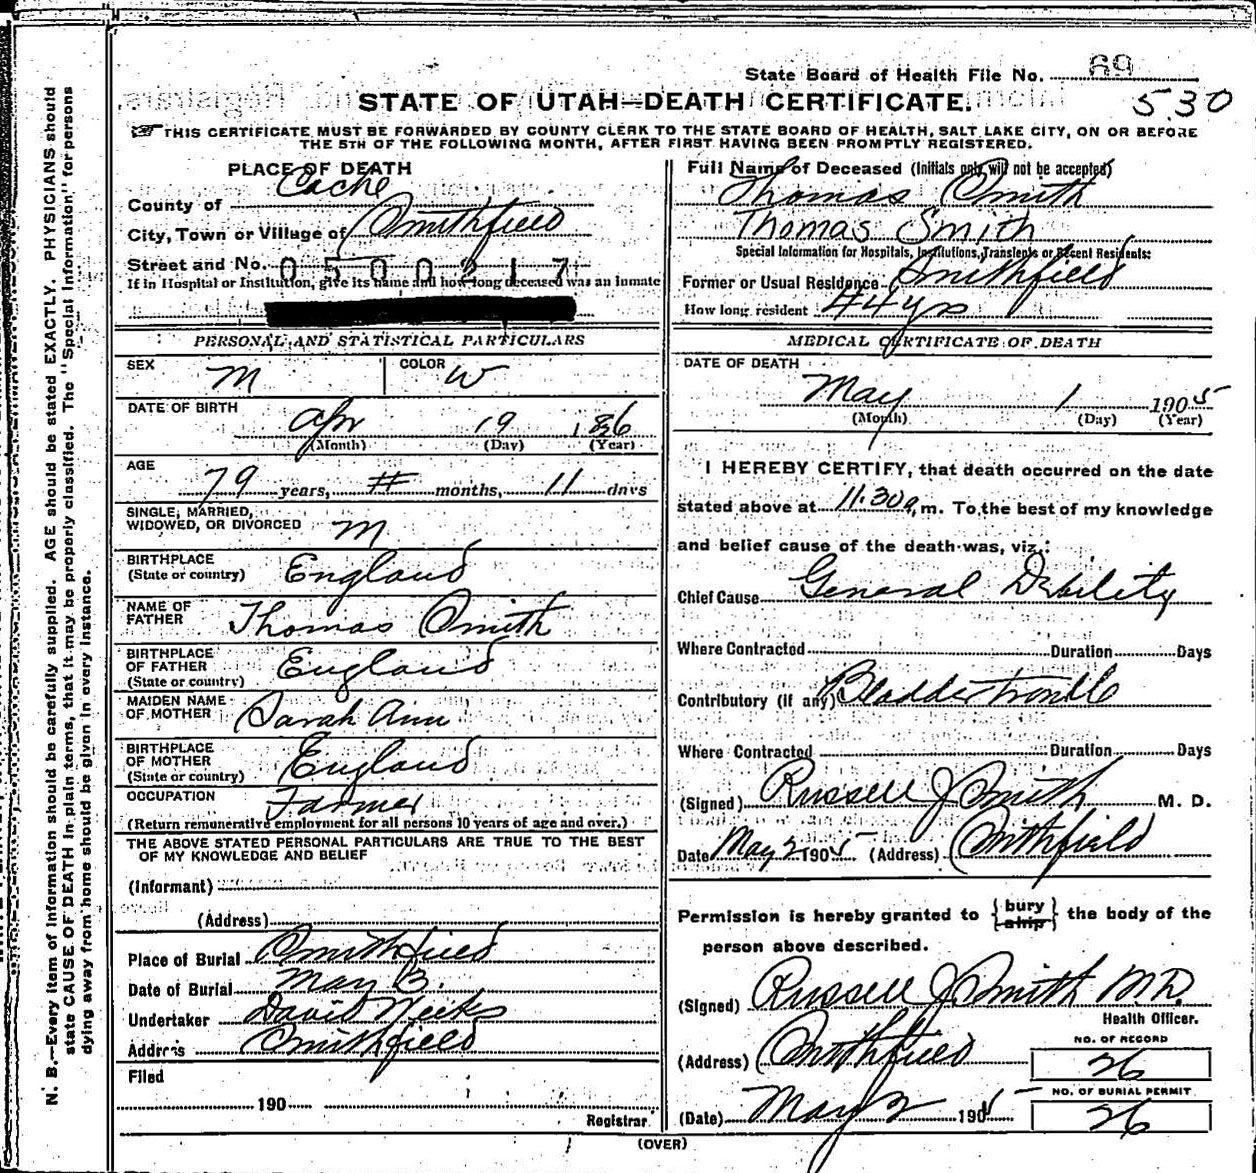 State Board of Health File No. 69
530
STATE OF UTAH—DEATH CERTIFICATE.
THIS CERTIFICATE MUST BE FORWARDED BY COUNTY CLERK TO THE STATE BOARD OF HEALTH, SALT LAKE CITY, ON OR BEFORE
THE 5TH OF THE FOLLOWING MONTH, AFTER FIRST HAVING BEEN PROMPTLY REGISTERED.
PLACE OF DEATH
County of Cache
City, Town or Village of Smithfield
Street and No. 0500217
If in Hospital or Institution, give its name and how long deceased was an inmate
PERSONAL AND STATISTICAL PARTICULARS
SEX M COLOR W
DATE OF BIRTH
Apr 19
(Month) (Day) (Year)
AGE
79 years, months, 11 days
SINGLE, MARRIED,
WIDOWED, OR DIVORCED M
BIRTHPLACE
(State or country) England
NAME OF
FATHER Thomas Smith
BIRTHPLACE
OF FATHER
(State or country) England
MAIDEN NAME
OF MOTHER Sarah Ann
BIRTHPLACE
OF MOTHER
(State or country) England
OCCUPATION Farmer
(Return remunerative employment for all persons 10 years of age and over.)
THE ABOVE STATED PERSONAL PARTICULARS ARE TRUE TO THE BEST
OF MY KNOWLEDGE AND BELIEF
(Informant)
(Address)
Place of Burial Smithfield
Date of Burial May 3.
Undertaker David Weeks
Address Smithfield
Filed
190
Registrar
Full Name of Deceased (Initials only will not be accepted)
Thomas Smith
Thomas Smith
Special Information for Hospitals, Institutions, Transients or Recent Residents:
Former or Usual Residence Smithfield
How long resident 44 yrs
MEDICAL CERTIFICATE OF DEATH
DATE OF DEATH
May 1 1905
(Month) (Day) (Year)
I HEREBY CERTIFY, that death occurred on the date
stated above at 11.30a, m. To the best of my knowledge
and belief cause of the death was, viz.:
Chief Cause General Debility
Where Contracted Duration Days
Contributory (if any) Bladder trouble
Where Contracted Duration Days
(Signed) Russell J Smith M. D.
Date May 2 1905 (Address) Smithfield
Permission is hereby granted to {bury ship} the body of the
person above described.
(Signed) Russell J Smith M.D.
Health Officer.
(Address) Smithfield
NO. OF RECORD
26
NO. OF BURIAL PERMIT
26
(Date) May 2 1905
(OVER)
N. B.—Every item of information should be carefully supplied. AGE should be stated EXACTLY. PHYSICIANS should
state CAUSE OF DEATH in plain terms, that it may be properly classified. The "Special Information" for persons
dying away from home should be given in every instance.